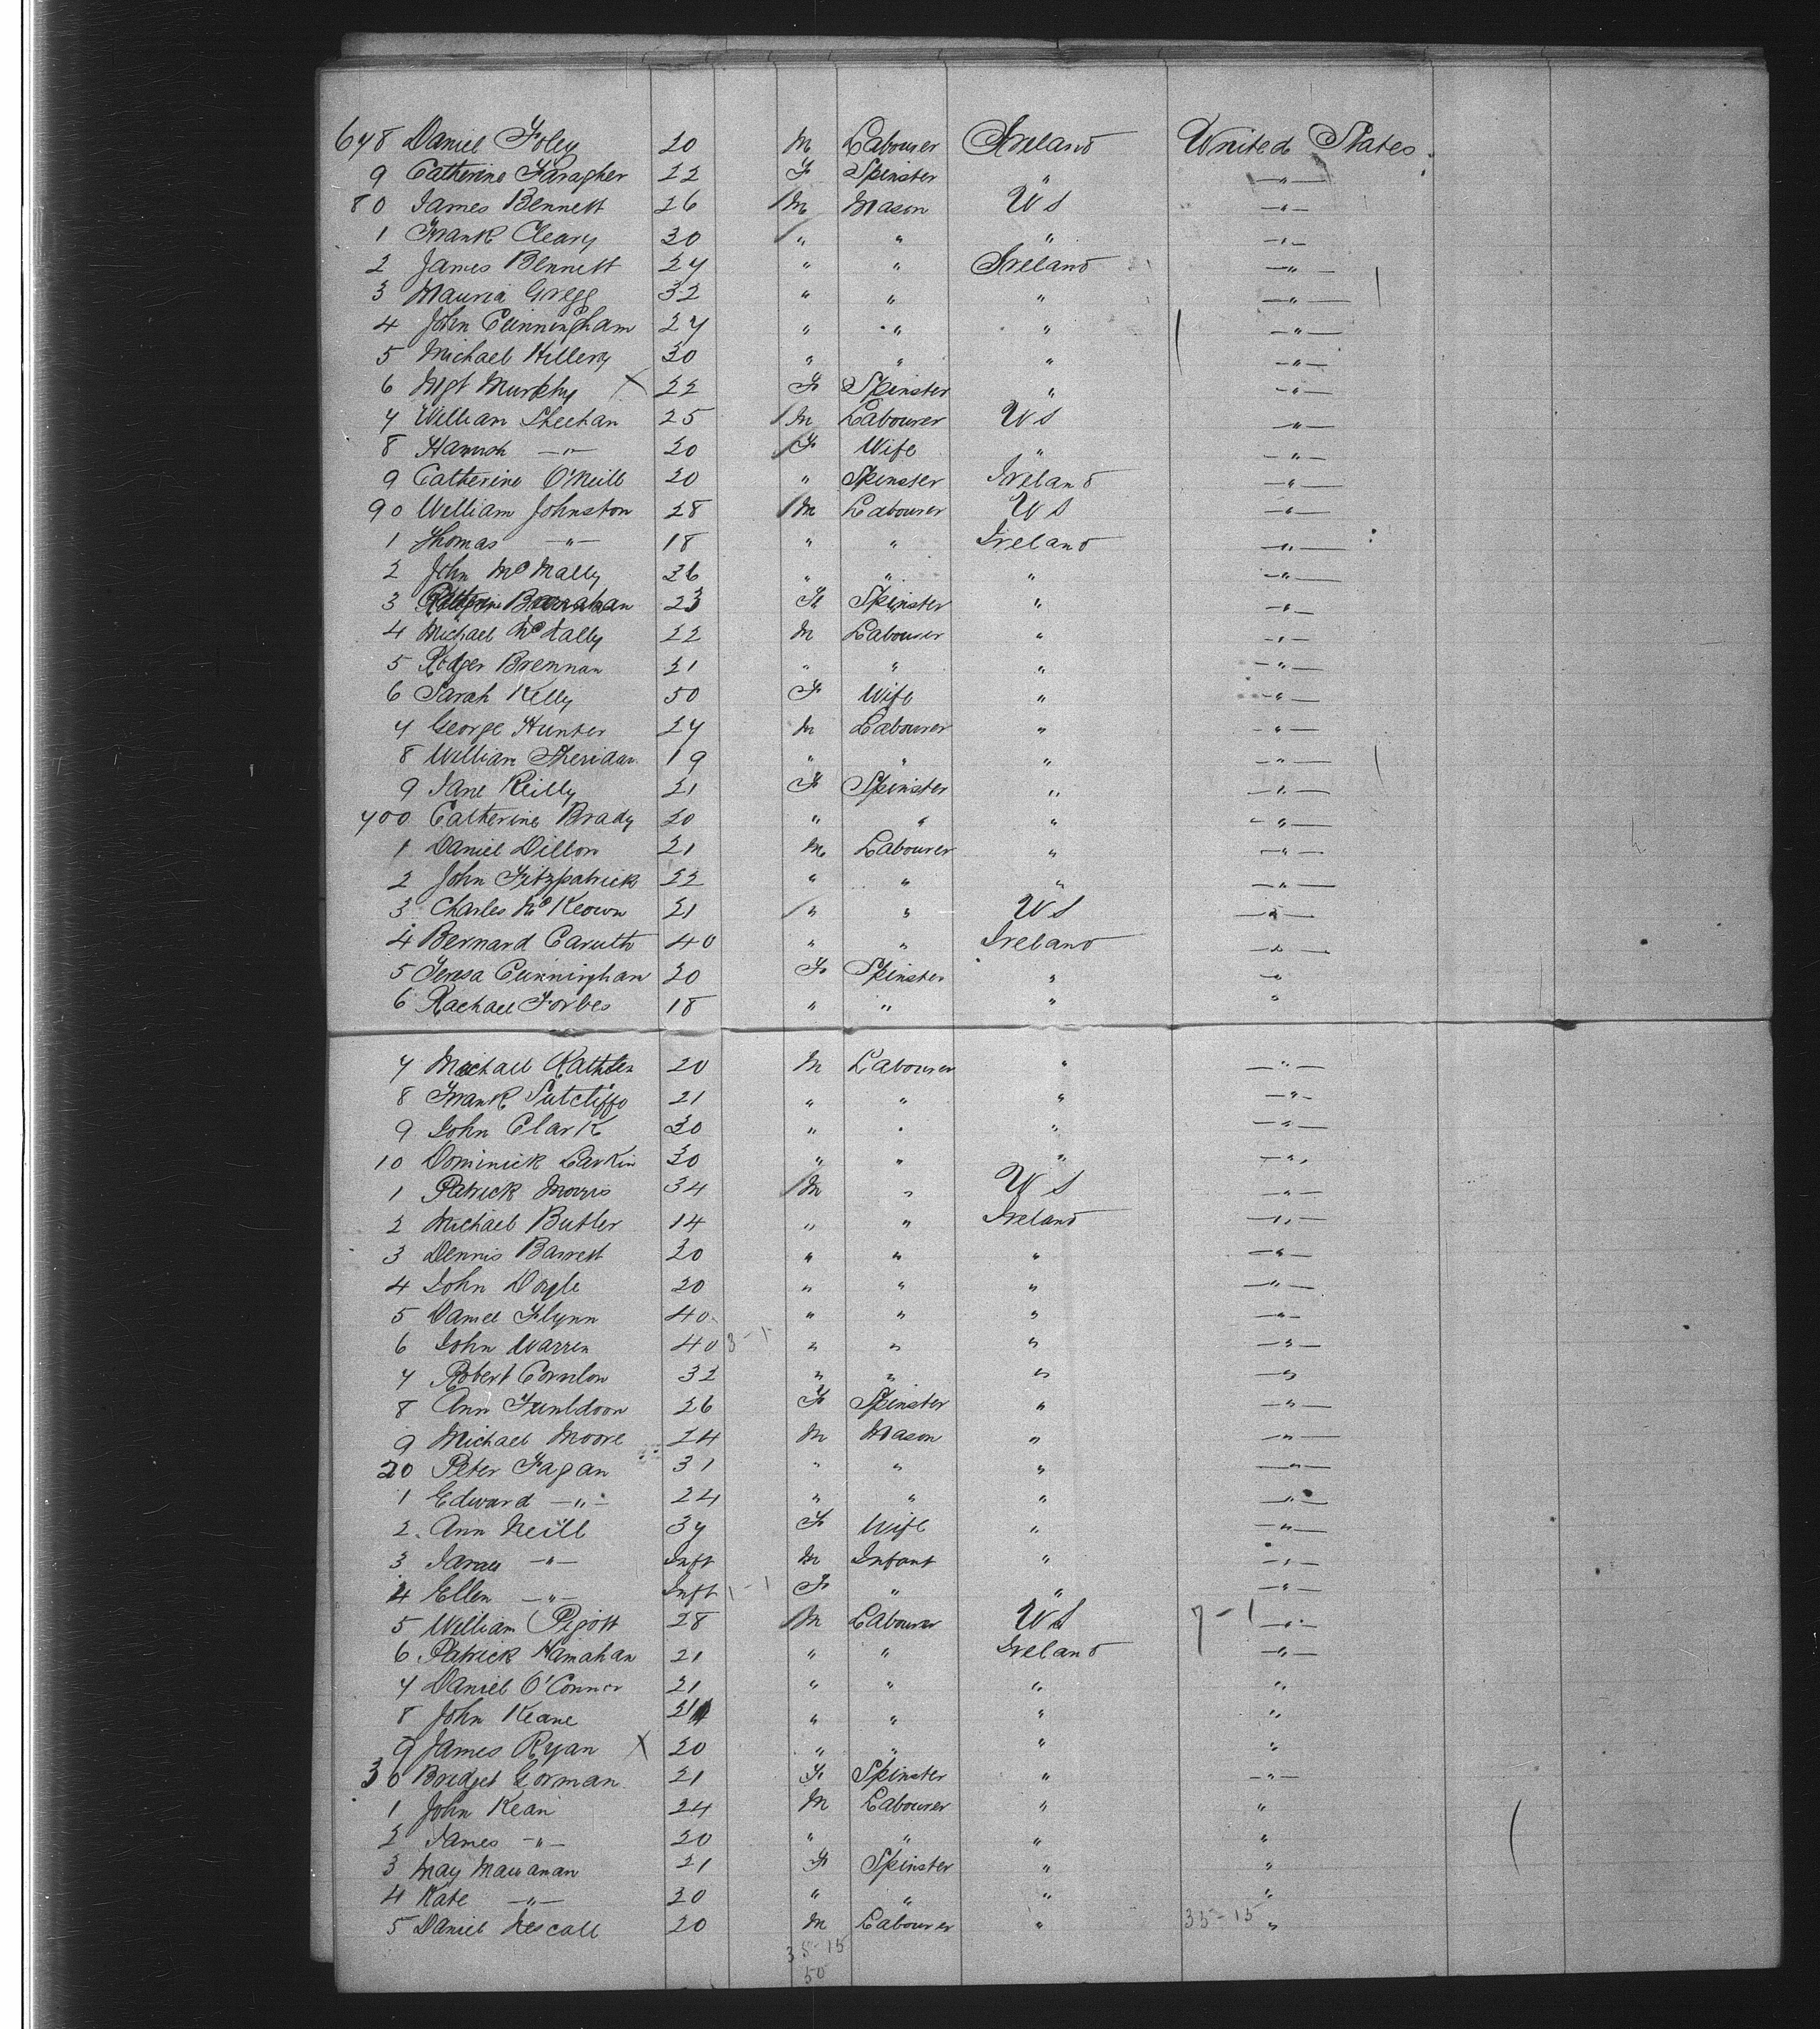 678 Daniel Foley 20 M Labourer Ireland United States
9 Catherine Faragher 22 F Spinster " —"—
80 James Bennett 26 M Mason US —"—
1 Frank Cleary 30 " " " —"—
2 James Bennett 27 " " Ireland —"—
3 Gregg 32 " " " —"—
4 John Cunningham 27 " " " —"—
5 Michael Hillery 30 " " " —"—
6 Mgt Murphy X 22 F Spinster " —"—
7 William Sheehan 25 M Labourer US —"—
8 Hannah —"— 20 F Wife " —"—
9 Catherine O'Neill 20 " Spinster Ireland —"—
90 William Johnston 28 M Labourer US —"—
1 Thomas —"— 18 " " Ireland —"—
2 John McNally 26 " " " —"—
3 23 F Spinster " —"—
4 Michael McNally 22 M Labourer " —"—
5 Rodger Brennan 21 " " " —"—
6 Sarah Kelly 50 F Wife " —"—
7 George Hunter 27 M Labourer " —"—
8 William Sheridan 19 " " " —"—
9 Jane Reilly 21 F Spinster " —"—
700 Catherine Brady 20 " " " —"—
1 Daniel Dillon 21 M Labourer " —"—
2 John Fitzpatrick 22 " " " —"—
3 Charles McKeown 21 " " US —"—
4 Bernard Caruth 40 " " Ireland —"—
5 Teresa Cunningham 20 F Spinster " —"—
6 Rachael Forbes 18 " " " "
7 Michael 20 M Labourer " —"—
8 Frank Sutcliffe 21 " " " —"—
9 John Clark 30 " " " —"—
10 Dominick Larkin 30 " " " —"—
1 Patrick Morris 34 M " US —"—
2 Michael Butler 14 " " Ireland —"—
3 Dennis Barrett 20 " " " —"—
4 John Doyle 20 " " " —"—
5 Daniel Flynn 40 " " " —"—
6 John Warren 40 3-1 " " " —"—
7 Robert 32 " " " —"—
8 Ann 26 F Spinster " —"—
9 Michael Moore 24 M Mason " —"—
20 Peter Fagan 31 " " " —"—
1 Edward —"— 24 " " " —"—
2 Ann Neill 37 F Wife " —"—
3 James —"— Inft M Infant " —"—
4 Ellen —"— Inft 1-1 F " " —"—
5 William Pigott 28 M Labourer US 7-1 —"—
6 Patrick Hanahan 21 " " Ireland —"—
7 Daniel O'Connor 21 " " " "
8 John Keane 21 " " " "
9 James Ryan X 20 " " " "
30 Bridget Gorman 21 F Spinster " —"—
1 John Kean 24 M Labourer " "
2 James —"— 20 " " " "
3 May 21 F Spinster " "
4 Kate —"— 20 " " " "
5 Daniel 20 M Labourer " 35-15 "
35-15
50